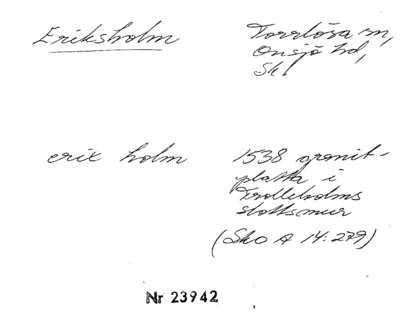 Eriksholm
Torrlösa sn,
Onsjö hd,
Sk.
erix holm
1538 granit-
platta i
Trolleholms
slottsmur
(SkO A 14:279)
Nr 23942